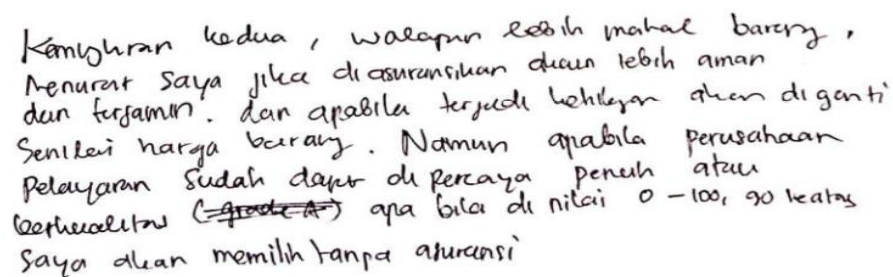 Kemungkinan kedua, walapun lebih mahal barang,
Menurut saya jika di asuransikan akan lebih aman
dan terjamin. dan apabila terjadi kehilangan akan di ganti
Senilai harga barang. Namun apabila perusahaan
Pelayaran sudah dapat di percaya penuh atau
berkualitas (grade A) apa bila di nilai 0 - 100, 90 keatas
saya akan memilih tanpa asuransi